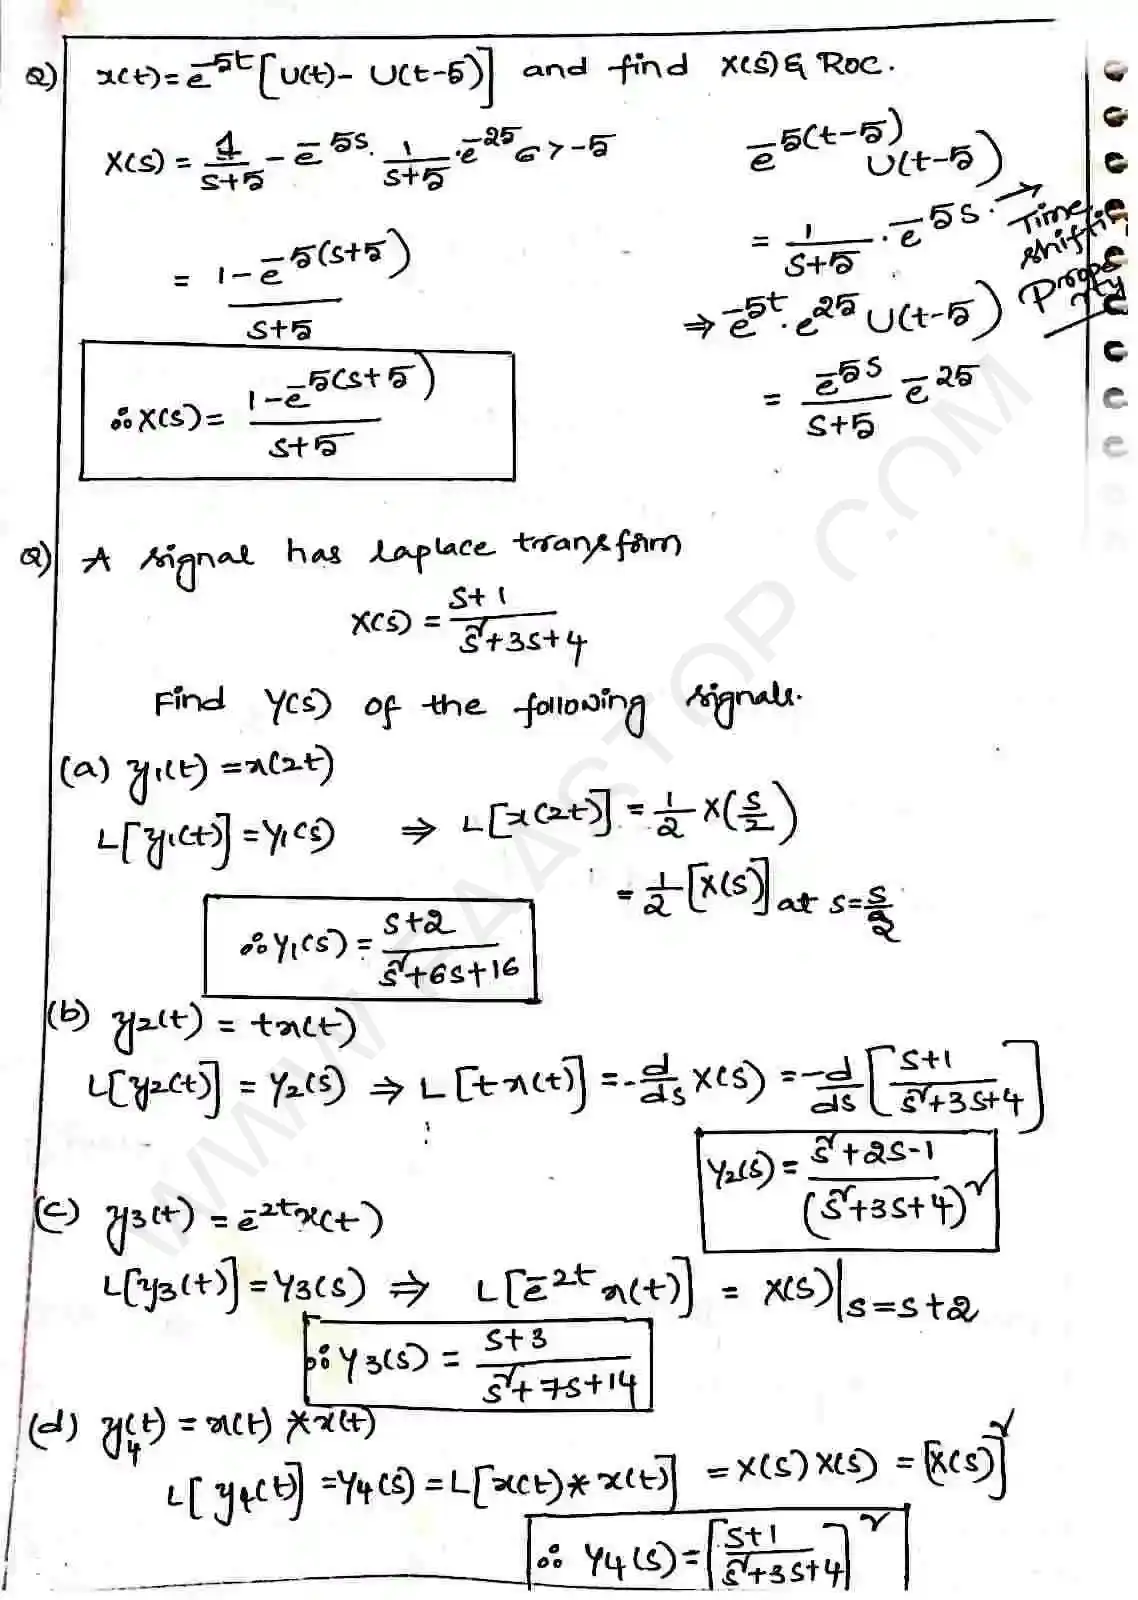 Q) x(t) = e^-5t [U(t) - U(t-5)] and find X(s) & ROC.
X(s) = 1/(s+5) - e^-5s . 1/(s+5) . e^-25 σ > -5
= (1 - e^-5(s+5))/(s+5)
∴ X(s) = (1 - e^-5(s+5))/(s+5)
e^-5(t-5) U(t-5)
= 1/(s+5) . e^-5s . → Time shifting Property
⇒ e^-5t . e^25 U(t-5)
= e^-5s/(s+5) e^-25
Q) A signal has laplace transform
X(s) = (s+1)/(s²+3s+4)
Find Y(s) of the following signals.
(a) y1(t) = x(2t)
L[y1(t)] = Y1(s) ⇒ L[x(2t)] = 1/2 X(s/2)
= 1/2 [X(s)] at s = s/2
∴ Y1(s) = (s+2)/(s²+6s+16)
(b) y2(t) = tx(t)
L[y2(t)] = Y2(s) ⇒ L[tx(t)] = -d/ds X(s) = -d/ds [(s+1)/(s²+3s+4)]
Y2(s) = (s²+2s-1)/(s²+3s+4)²
(c) y3(t) = e^-2t x(t)
L[y3(t)] = Y3(s) ⇒ L[e^-2t x(t)] = X(s)|s=s+2
∴ Y3(s) = (s+3)/(s²+7s+14)
(d) y4(t) = x(t) * x(t)
L[y4(t)] = Y4(s) = L[x(t) * x(t)] = X(s) X(s) = [X(s)]²
∴ Y4(s) = [(s+1)/(s²+3s+4)]²
WWW.FAASTOP.COM